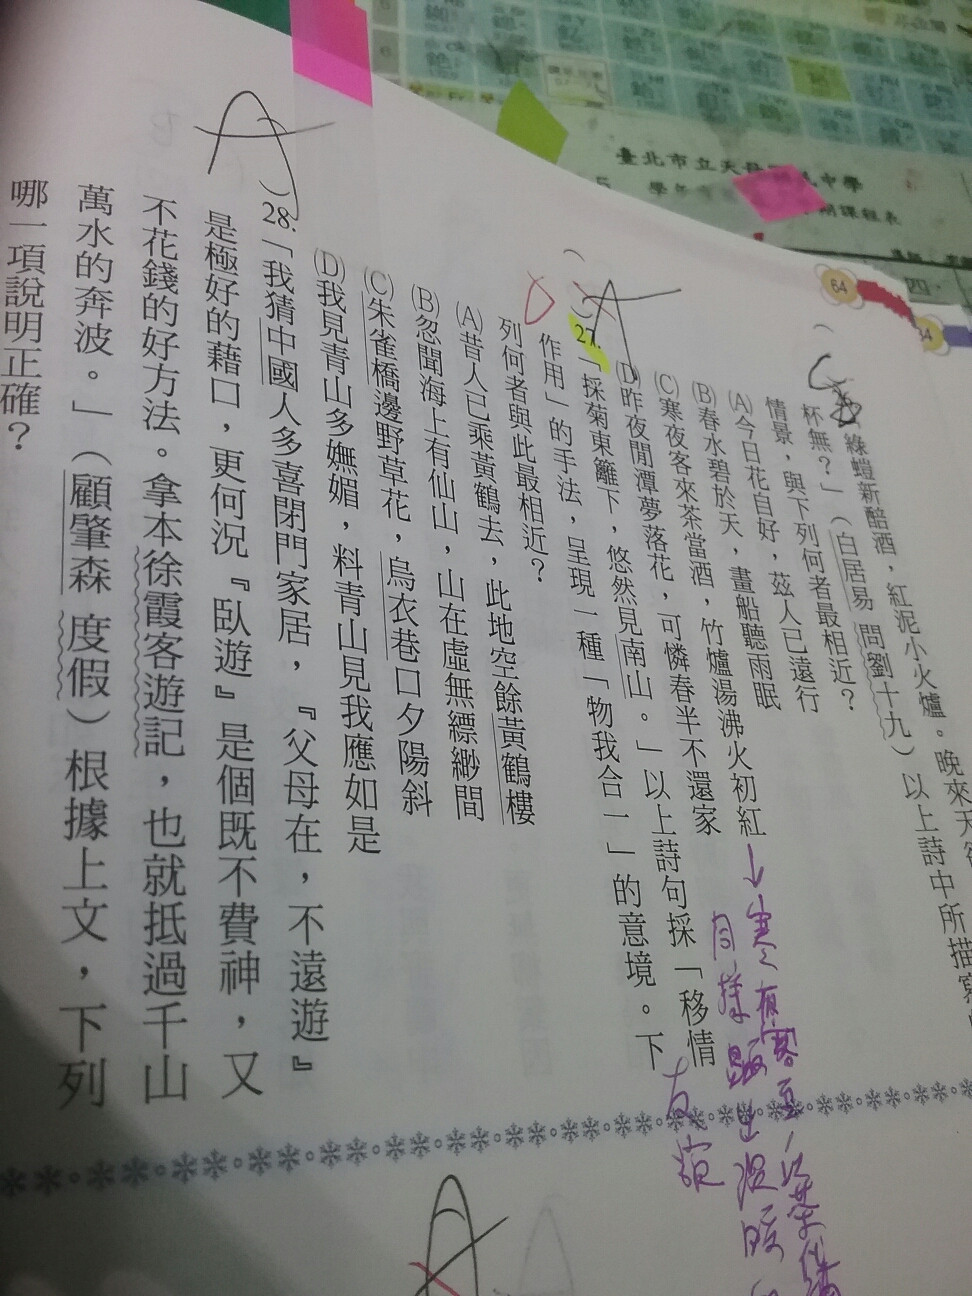 臺北市立天
學年
期課程表
四
64
綠螘新醅酒，紅泥小火爐。晚來天
杯無？」（白居易 問劉十九）以上詩中所描寫
情景，與下列何者最相近？
(A)今日花自好，茲人已遠行
(B)春水碧於天，畫船聽雨眠
(C)寒夜客來茶當酒，竹爐湯沸火初紅
(D)昨夜閒潭夢落花，可憐春半不還家
27.「採菊東籬下，悠然見南山。」以上詩句採「移情
作用」的手法，呈現一種「物我合一」的意境。下
列何者與此最相近？
(A)昔人已乘黃鶴去，此地空餘黃鶴樓
(B)忽聞海上有仙山，山在虛無縹緲間
(C)朱雀橋邊野草花，烏衣巷口夕陽斜
(D)我見青山多嫵媚，料青山見我應如是
A
A
)28.「我猜中國人多喜閉門家居，『父母在，不遠遊』
是極好的藉口，更何況『臥遊』是個既不費神，又
不花錢的好方法。拿本徐霞客遊記，也就抵過千山
萬水的奔波。」（顧肇森 度假）根據上文，下列
哪一項說明正確？
A